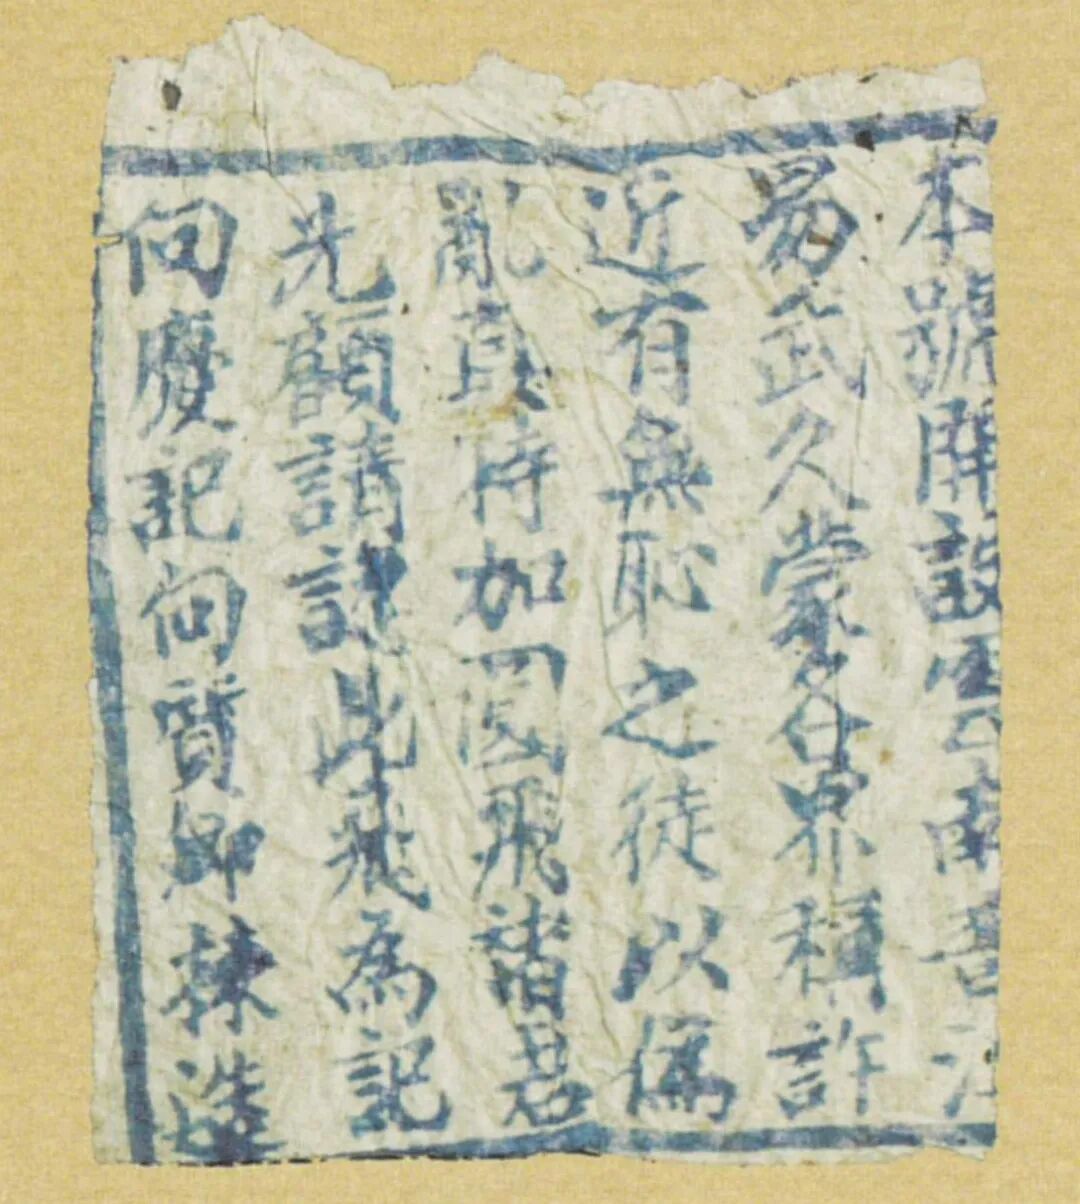 本號開設雲南普洱
易武久蒙各界稱許
近有無恥之徒以偽
亂真特加圖飛諸君
光顧請認此飛為記
向慶記向質卿揀造